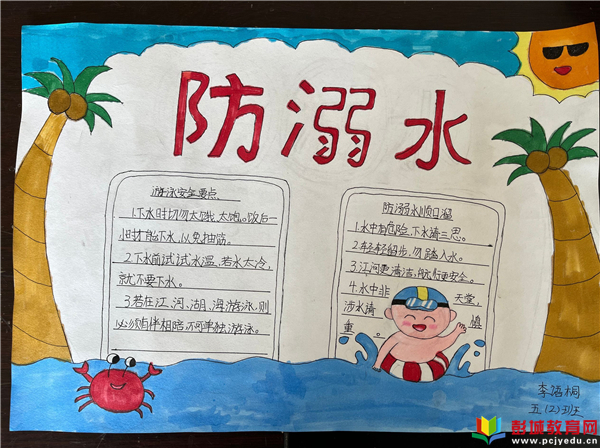 防溺水
游泳安全要点
1.下水时切勿太饿、太饱。饭后一
小时才能下水,以免抽筋。
2.下水前试试水温,若水太冷,
就不要下水。
3.若在江、河、湖、海游泳,则
必须有伴相陪,不可单独游泳。
防溺水顺口溜
1.水中有危险,下水请三思。
2.轻轻留步,勿踏入水。
3.江河更清洁,
更安全。
4.水中非
天堂,
涉水请
慎
重。
李语桐
五(2)班
彭城教育网
www.pcjyedu.cn